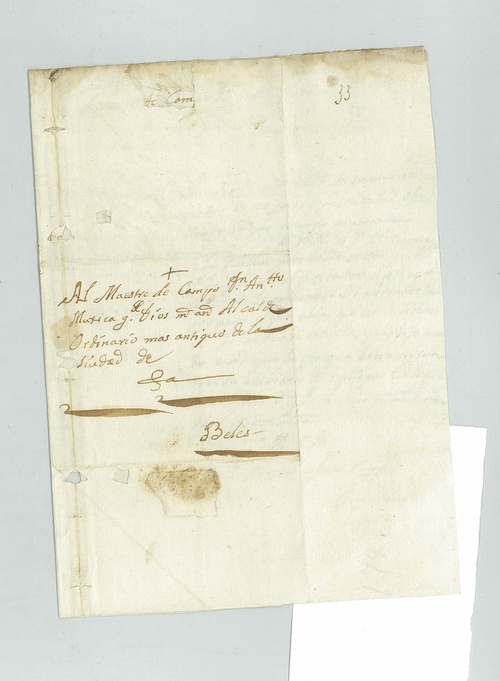 de Com
33
Al Maestre de Campo Dn. Antto
Muxica g.e Dios ms. as. Alcalde
Ordinario mas antiguo de la
Siudad de
Beles